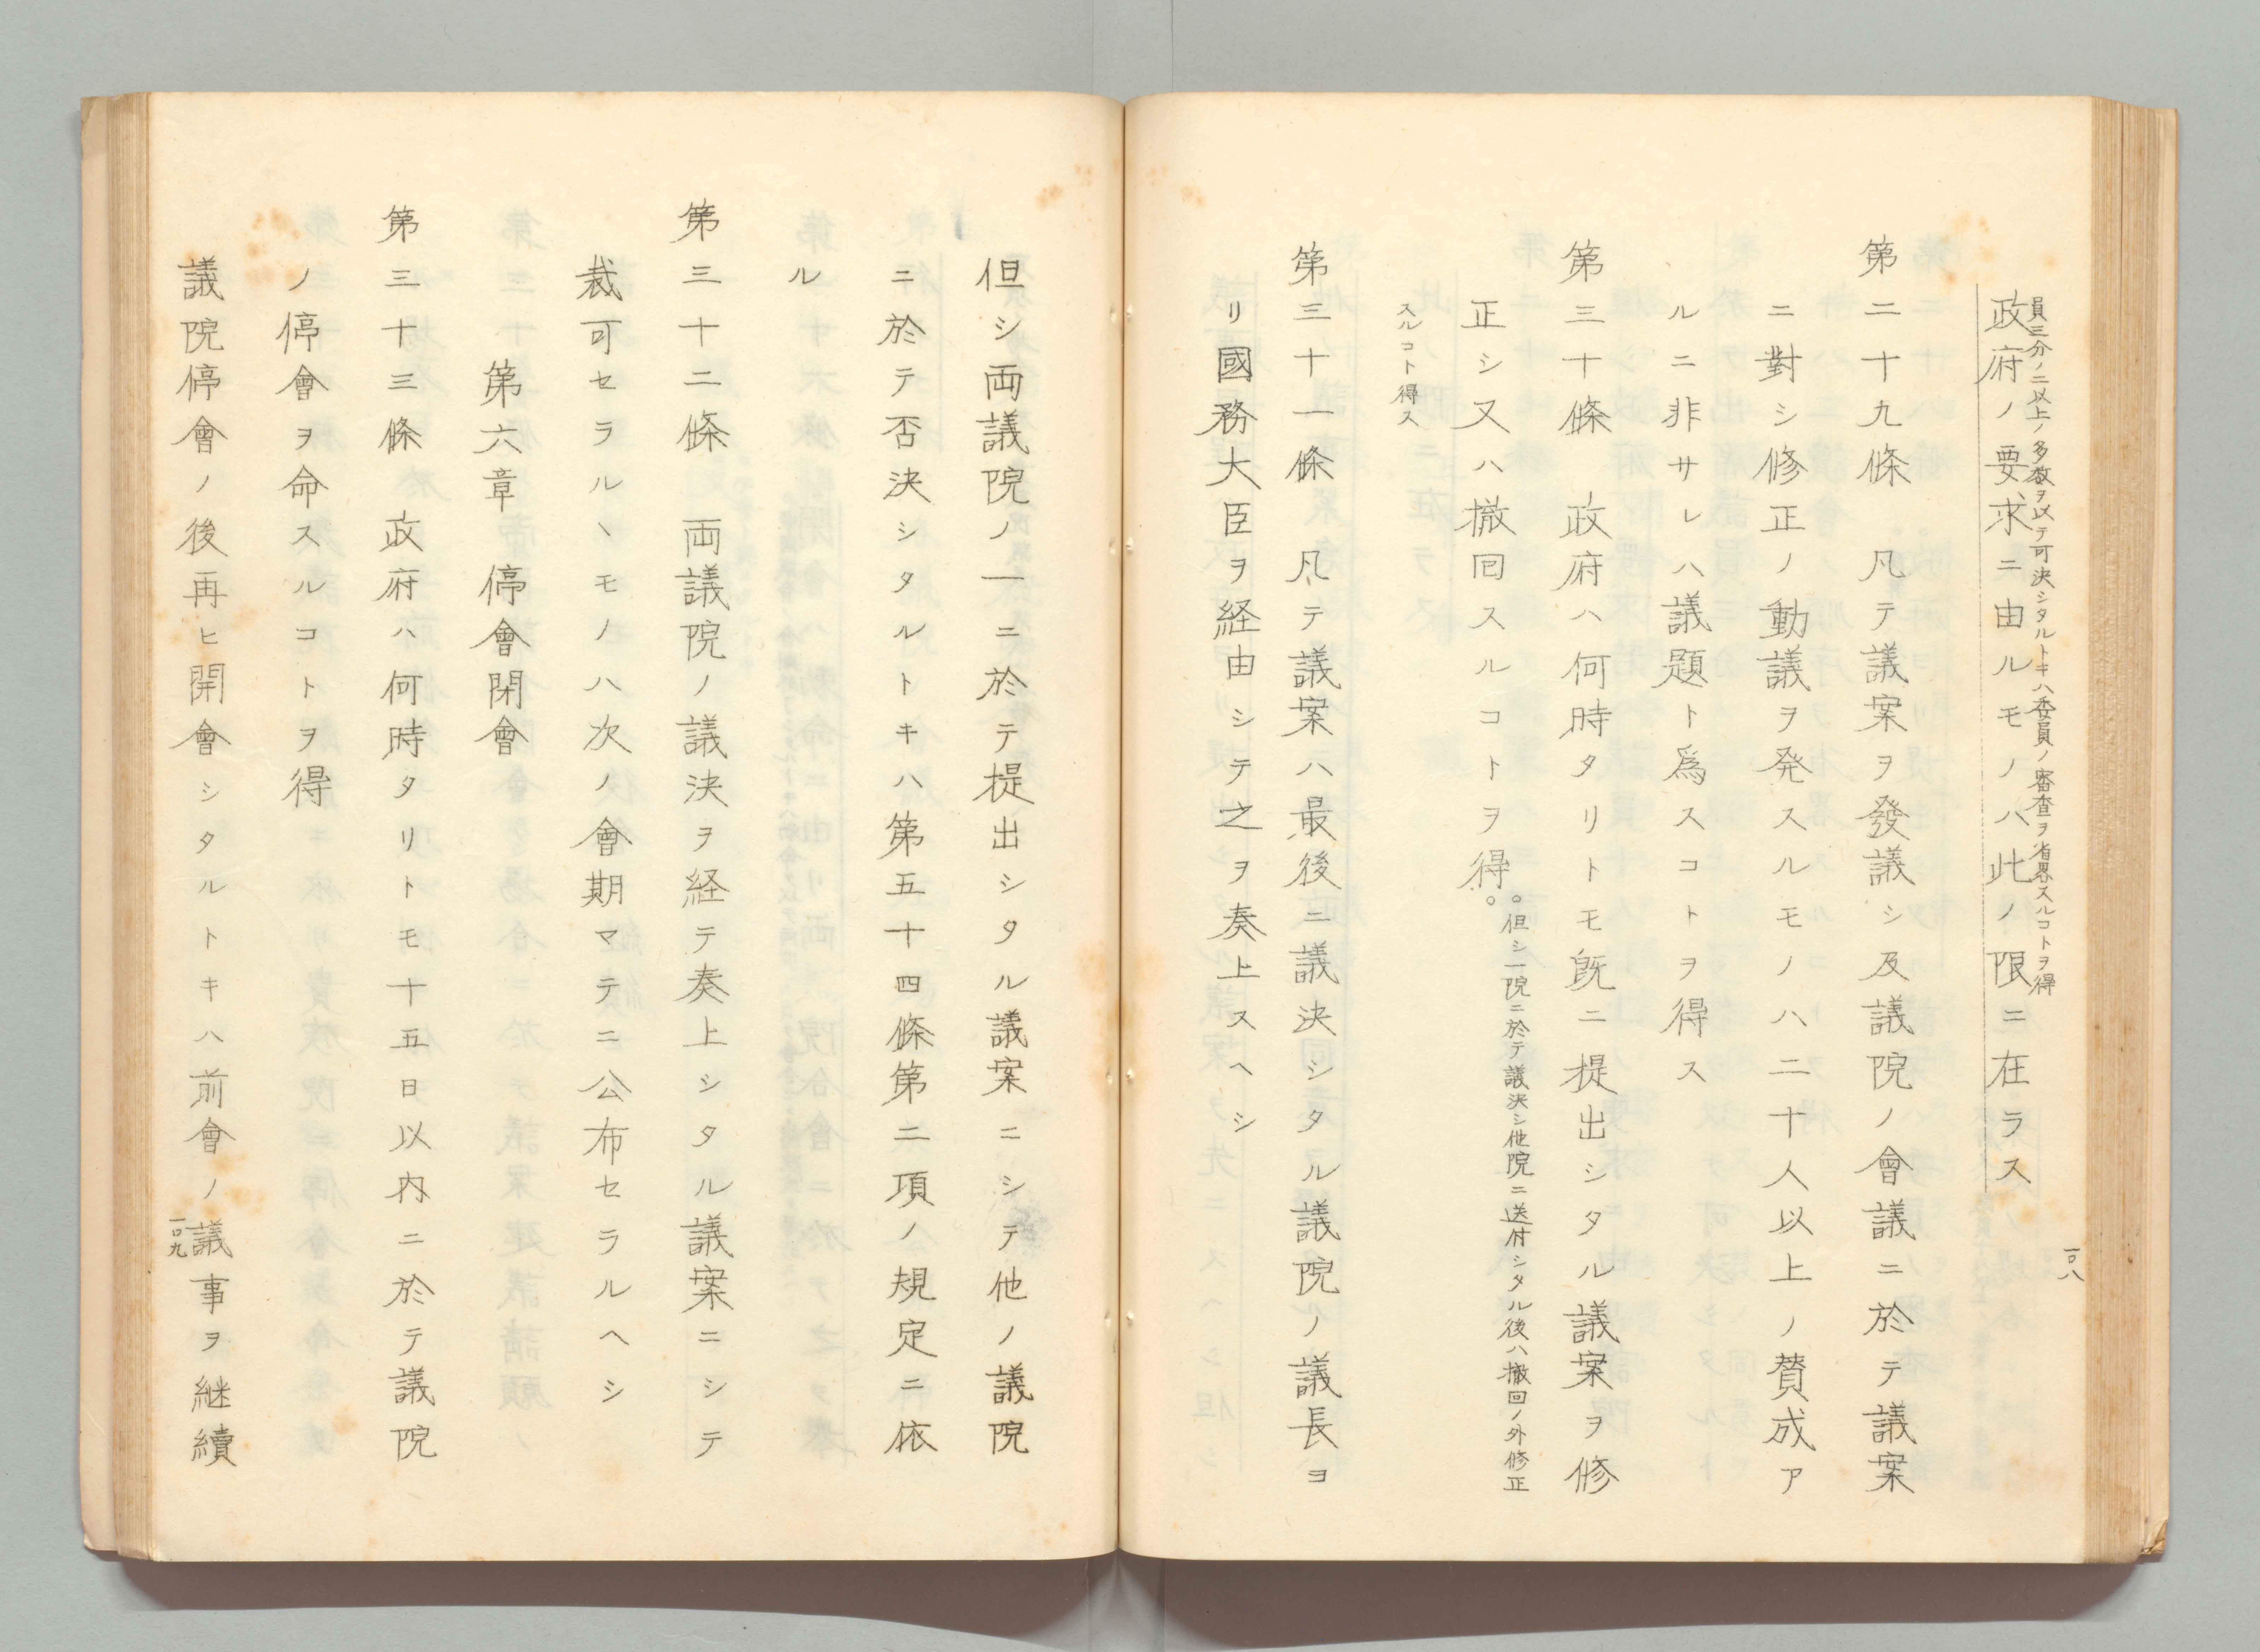 員三分ノ二以上ノ多数ヲ以テ可決シタルトキハ委員ノ審査ヲ省畧スルコトヲ得
政府ノ要求ニ由ルモノハ此ノ限ニ在ラス
第二十九條　凡テ議案ヲ發議シ及議院ノ會議ニ於テ議案
ニ對シ修正ノ動議ヲ発スルモノハ二十人以上ノ賛成ア
ルニ非サレハ議題ト爲スコトヲ得ス
第三十條　政府ハ何時タリトモ既ニ提出シタル議案ヲ修
正シ又ハ撤回スルコトヲ得。
。但シ一院ニ於テ議決シ他院ニ送付シタル後ハ撤回ノ外修正
スルコト得ス
第三十一條　凡テ議案ハ最後ニ議決シタル議院ノ議長ヨ
リ國務大臣ヲ経由シテ之ヲ奏上スヘシ
一〇八
但シ両議院ノ一ニ於テ提出シタル議案ニシテ他ノ議院
ニ於テ否決シタルトキハ第五十四條第二項ノ規定ニ依
ル
第三十二條　両議院ノ議決ヲ経テ奏上シタル議案ニシテ
裁可セラルヽモノハ次ノ會期マテニ公布セラルヘシ
第六章　停會閉會
第三十三條　政府ハ何時タリトモ十五日以内ニ於テ議院
ノ停會ヲ命スルコトヲ得
議院停會ノ後再ヒ開會シタルトキハ前會ノ議事ヲ継續
一〇九